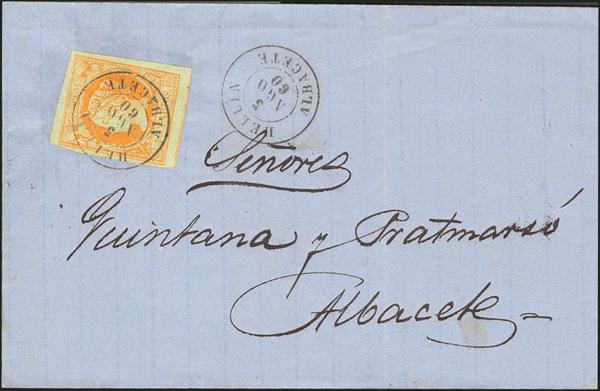 HELLIN
3
AGO
60
ALBACETE
HELLIN
3
AGO
60
ALBACETE
Señores
Quintana y Pratmarsó
Albacete